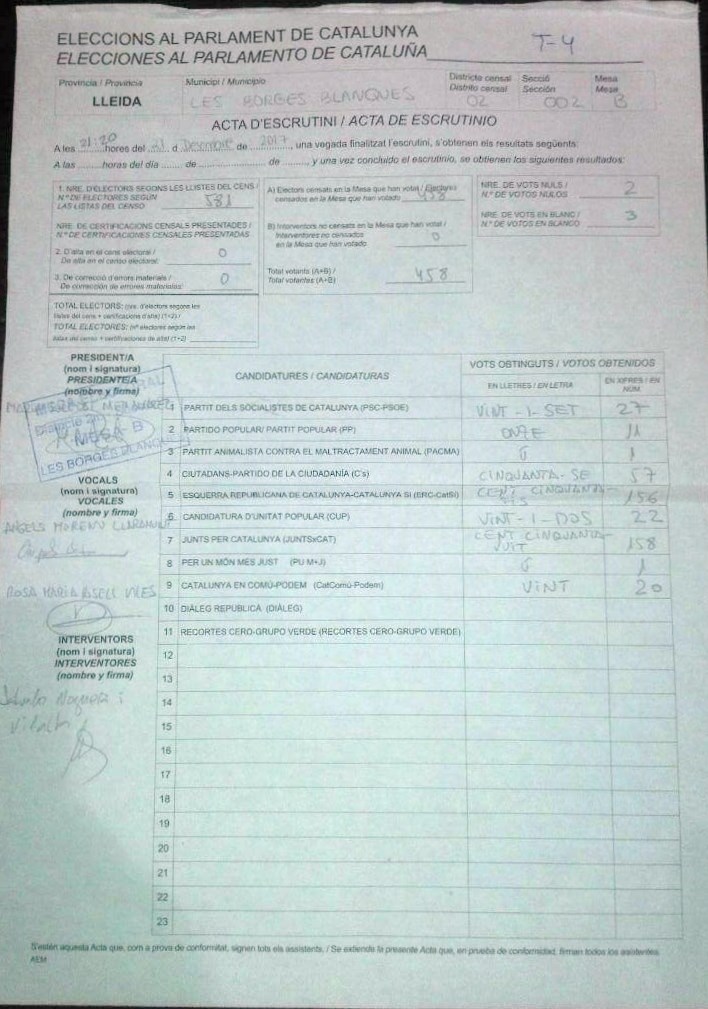 ELECCIONS AL PARLAMENT DE CATALUNYA
ELECCIONES AL PARLAMENTO DE CATALUÑA
T-4
Província / Provincia
Municipi / Municipio
Districte censal
Distrito censal
Secció
Sección
Mesa
Mesa
LLEIDA
LES BORGES BLANQUES
02
002
B
ACTA D'ESCRUTINI / ACTA DE ESCRUTINIO
A les 21:20 hores del 21 d Desembre de 2017, una vegada finalitzat l'escrutini, s'obtenen els resultats següents:
A las ........ horas del día ........ de ........ de ........, y una vez concluido el escrutinio, se obtienen los siguientes resultados:
1. NRE. D'ELECTORS SEGONS LES LLISTES DEL CENS /
N.º DE ELECTORES SEGÚN
LAS LISTAS DEL CENSO
581
NRE. DE CERTIFICACIONS CENSALS PRESENTADES /
N.º DE CERTIFICACIONES CENSALES PRESENTADAS
2. D'alta en el cens electoral /
De alta en el censo electoral:
0
3. De correcció d'errors materials /
De corrección de errores materiales:
0
TOTAL ELECTORS: (nre. d'electors segons les
llistes del cens + certificacions d'alta) (1+2) /
TOTAL ELECTORES: (nº electores según las
listas del censo + certificaciones de alta) (1+2)
A) Electors censats en la Mesa que han votat / Electores
censados en la Mesa que han votado
458
B) Interventors no censats en la Mesa que han votat /
Interventores no censados
en la Mesa que han votado
0
Total votants (A+B) /
Total votantes (A+B)
458
NRE. DE VOTS NULS /
N.º DE VOTOS NULOS
2
NRE. DE VOTS EN BLANC /
N.º DE VOTOS EN BLANCO
3
PRESIDENT/A
(nom i signatura)
PRESIDENTE/A
(nombre y firma)
MESA B
LES BORGES BLANQUES
VOCALS
(nom i signatura)
VOCALES
(nombre y firma)
ÀNGELS MORENO
ROSA MARIA
INTERVENTORS
(nom i signatura)
INTERVENTORES
(nombre y firma)
CANDIDATURES / CANDIDATURAS
VOTS OBTINGUTS / VOTOS OBTENIDOS
EN LLETRES / EN LETRA
EN XIFRES / EN NÚM.
1 PARTIT DELS SOCIALISTES DE CATALUNYA (PSC-PSOE) VINT-I-SET 27
2 PARTIDO POPULAR/ PARTIT POPULAR (PP) ONZE 11
3 PARTIT ANIMALISTA CONTRA EL MALTRACTAMENT ANIMAL (PACMA) 1
4 CIUTADANS-PARTIDO DE LA CIUDADANÍA (C's) CINQUANTA-SE 57
5 ESQUERRA REPUBLICANA DE CATALUNYA-CATALUNYA SÍ (ERC-CatSí) CENT CINQUANTA-SIS 156
6 CANDIDATURA D'UNITAT POPULAR (CUP) VINT-I-DOS 22
7 JUNTS PER CATALUNYA (JUNTSxCAT) CENT CINQUANTA-VUIT 158
8 PER UN MÓN MÉS JUST (PU M+J) 1
9 CATALUNYA EN COMÚ-PODEM (CatComú-Podem) VINT 20
10 DIÀLEG REPUBLICÀ (DIÀLEG)
11 RECORTES CERO-GRUPO VERDE (RECORTES CERO-GRUPO VERDE)
12
13
14
15
16
17
18
19
20
21
22
23
S'estén aquesta Acta que, com a prova de conformitat, signen tots els assistents. / Se extiende la presente Acta que, en prueba de conformidad, firman todos los asistentes.
AEM